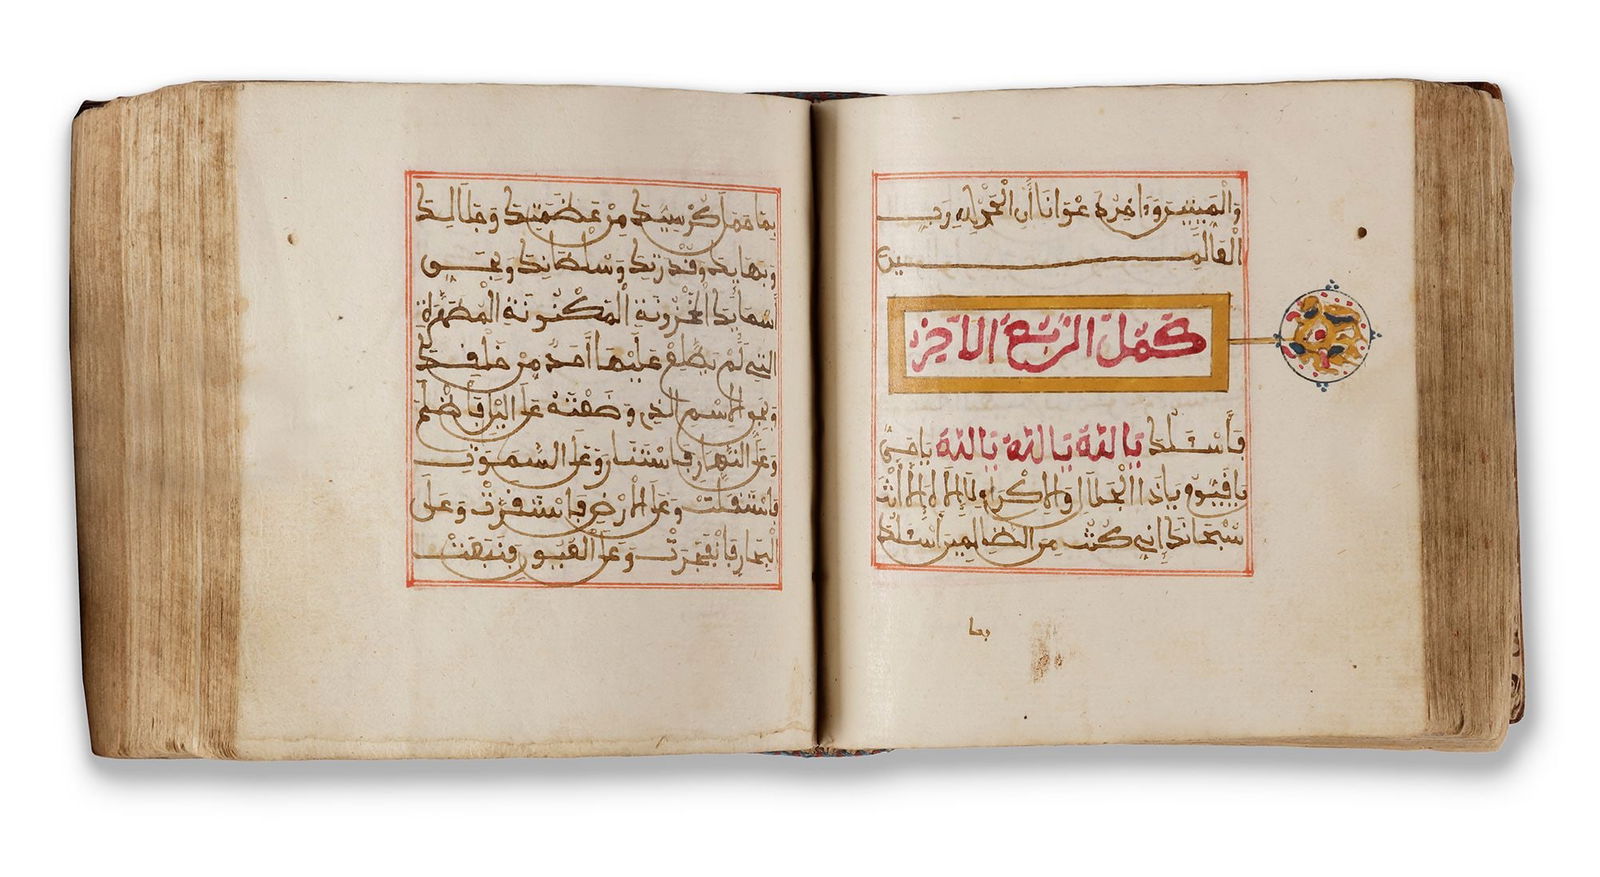 والميتين وءاخر دعوانا أن الحمد لله رب
العالمين
كمل الربع الاخر
فأسئلك يالله يالله يالله ياحي
ياقيوم ياذا الجلال والاكرام لا إله إلا أنت
سبحانك إني كنت من الظالمين أسئلك
بما
بما حمل كرسيك من عظمتك وجلالك
وبهائك وقدرتك وسلطانك وبحق
أسمائك المخزونة المكنونة المطهرة
التي لم يطلع عليها أحد من خلقك
وبحق الاسم الذي وضعته على اليل فأظلم
وعلى النهار فاستنار وعلى السموات
فاستقلت وعلى الارض فاستقرت وعلى
البحار فانفجرت وعلى العيون فنبعت